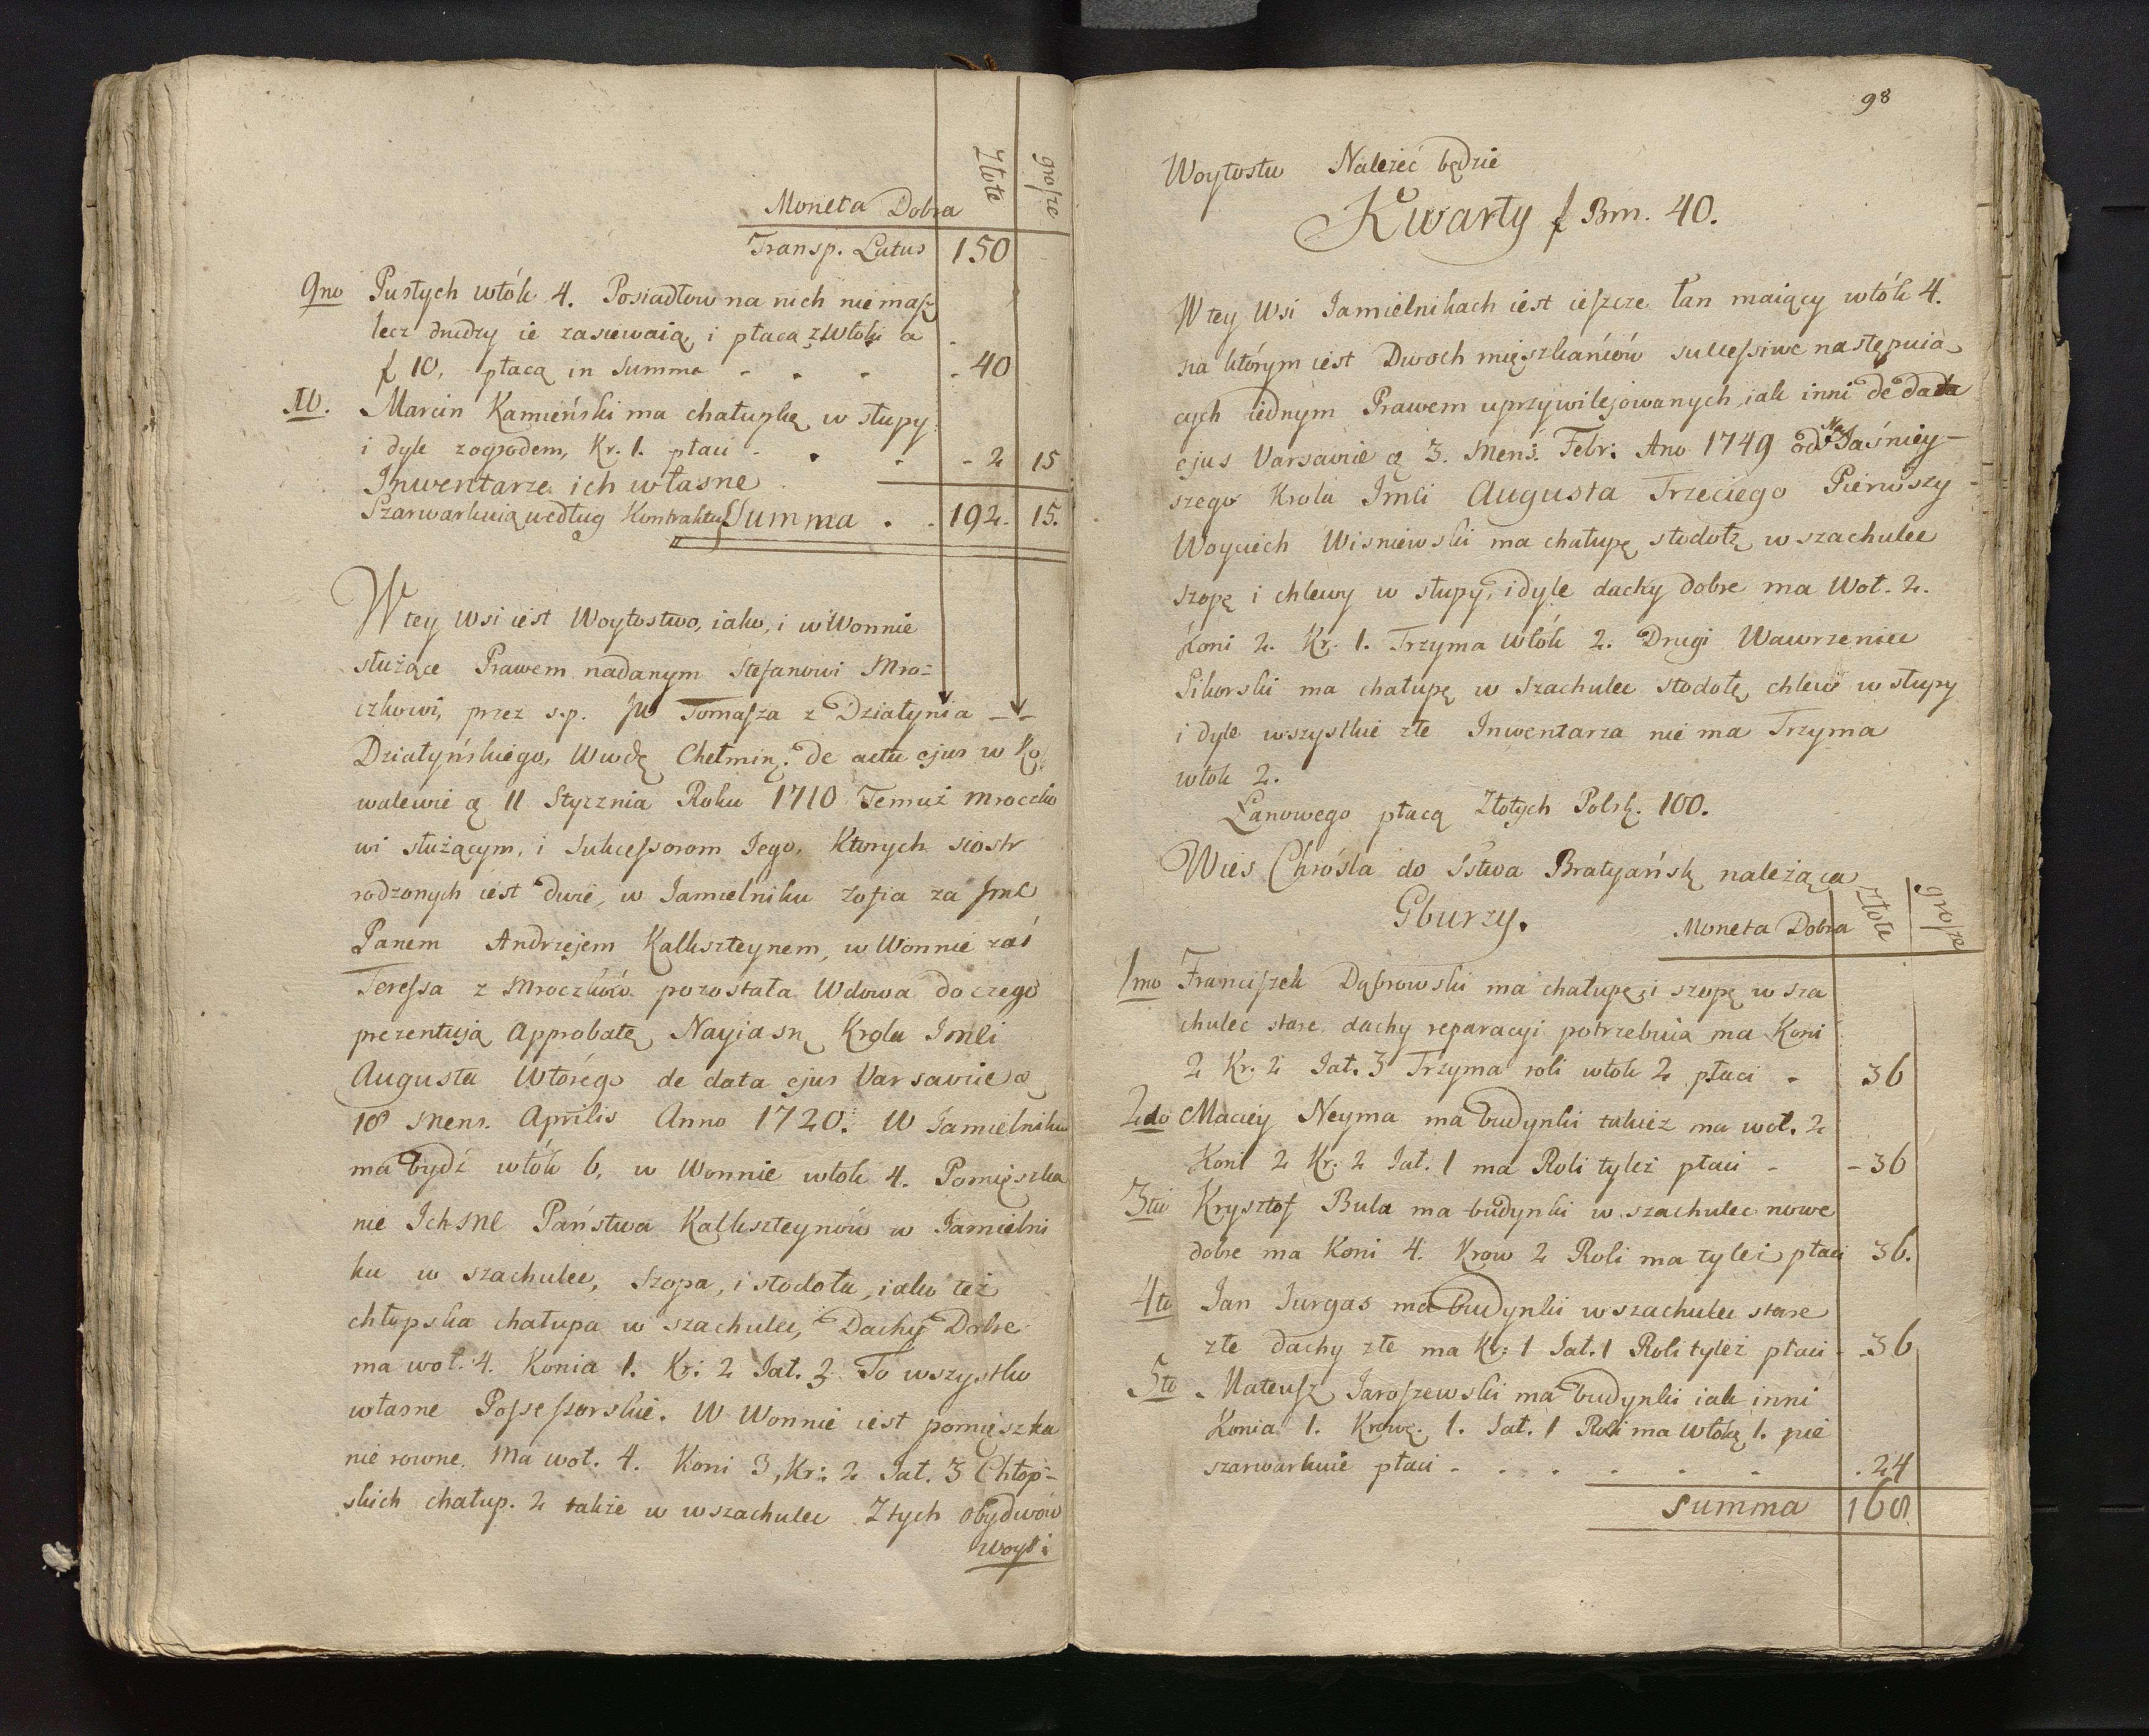 Złote
grosze
Moneta Dobra
Transp. Latus 150
9no Pustych włók 4. Posiadłow na nich niemasz
lecz drudzy ie zasiewaią, i płacą z Włoki a
f 10, płacą in Summa - . - - 40
10. Marcin Kamieński ma chałupkę w słupy
i dyle zogrodem, Kr. 1. płaci - . - - 2 15
Inwentarze ich własne
Szarwarkuią według Kontraktu Summa . . 192. 15.
W tey Wsi iest Woytostwo, iako, i w Wonnie
służące Prawem nadanym Stefanowi Mro-
czkowi, przez s.p. JW Tomasza z Działynia
Działyńskiego, Wwdę Chełminę. de actu ejus w Ko
walewie d. 11 Stycznia Roku 1710 Temuż Mroczko
wi służącym, i Sukcessorom Jego, Ktorych siostr
rodzonych iest dwie, w Jamielniku Zofia za Jmć
Panem Andrzejem Kalkszteynem, w Wonnie zaś
Teressa z Mroczków pozostała Wdowa do czego
prezentują Approbatę Nayiasnę Krola Jmci
Augusta Wtórego de data ejus Varsaviæ d
18 Mens. Aprilis Anno 1720. W Jamielniku
ma bydź włók 6, w Wonnie włok 4. Pomięszka
nie Ich Mć Państwa Kalkszteynów w Jamielni
ku w szachulec, Szopa, i stodoła, iako też
chłopska chałupa w szachulec, Dachy Dobre
ma woł. 4. Konia 1. Kr: 2 Jał. 3 To wszystko
własne Possessorskie. W Wonnie iest pomięszka
nie rowne. Ma woł. 4. Koni 3, Kr: 2 Jał. 3 Chłop-
skich chałup. 2 także w wszachulec Ztych obydwów
Woyt:
98
Woytostw Należeć będzie
Kwarty f Bm. 40.
W tey Wsi Jamielnikach iest ieszcze łan maiący włók 4.
na którym iest Dwoch mięszkańców successive następuią
cych iednym Prawem uprzywilejowanych, iak inni de data
ejus Varsaviæ d 3. Mens. Febr: Ano 1749 od Nayiaśniey-
szego Krola Jmci Augusta Trzeciego Pierwszy
Woyciech Wisniewski ma chałupę, stodołę w szachulec
szopę i chlewy w słupy, i dyle dachy dobre ma Woł. 2.
Koni 2. Kr. 1. Trzyma Włók 2. Drugi Wawrzeniec
Sikorski ma chałupę w Szachulec stodołę, chlew w słupy
i dyle wszystkie złe Inwentarza nie ma Trzyma
włok 2.
Łanowego płacą Złotych Polsk. 100.
Wieś Chrośla do Sstwa Bratyańsk należąca
Gburzy.
Moneta Dobra
Złote
grosze
1mo Franciszek Dąbrowski ma chałupę, i szopę w sza
chulec stare, dachy reparacyi potrzebuią ma Koni
2 Kr. 2 Jał. 3 Trzyma roli włok 2 płaci - 36
2do Maciey Neyma ma budynki takież ma woł. 2
Koni 2 Kr: 2 Jał. 1 ma Roli tyleż płaci - - 36
3tio Krysztof Bula ma budynki w szachulec nowe
dobre ma Koni 4. Krow 2 Roli ma tyleż płaci 36.
4to Jan Jurgas ma budynki w szachulec stare
złe dachy złe ma Kr: 1 Jał. 1 Roli tyleż płaci - 36
5to Mateusz Jaroszewski ma budynki iak inni
Konia 1. Krowę. 1. Jał. 1 Roli ma Włókę 1. nie
szarwarkuie płaci - . . . . . . 24
Summa 168